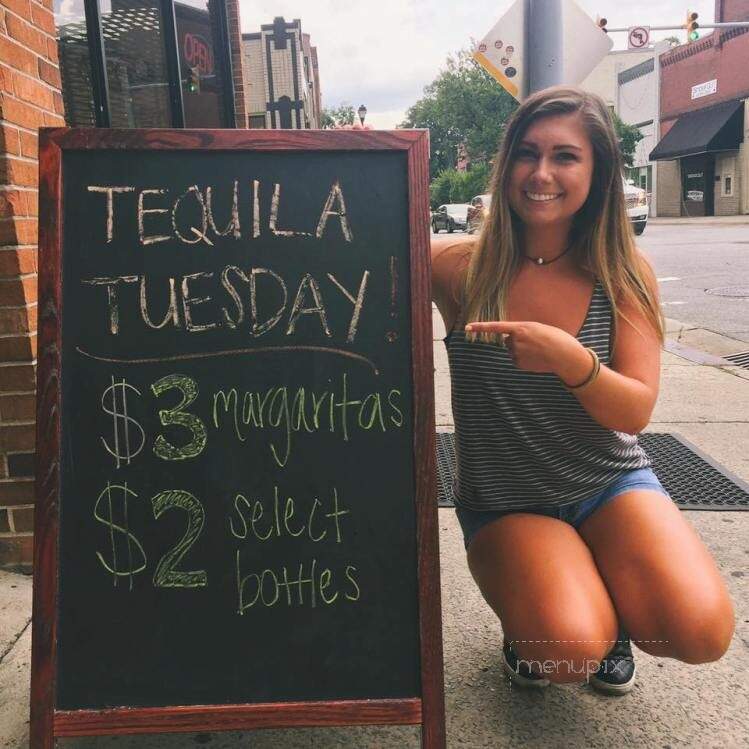 OPEN
TEQUILA
TUESDAY!
$3 margaritas
$2 select
bottles
menupix